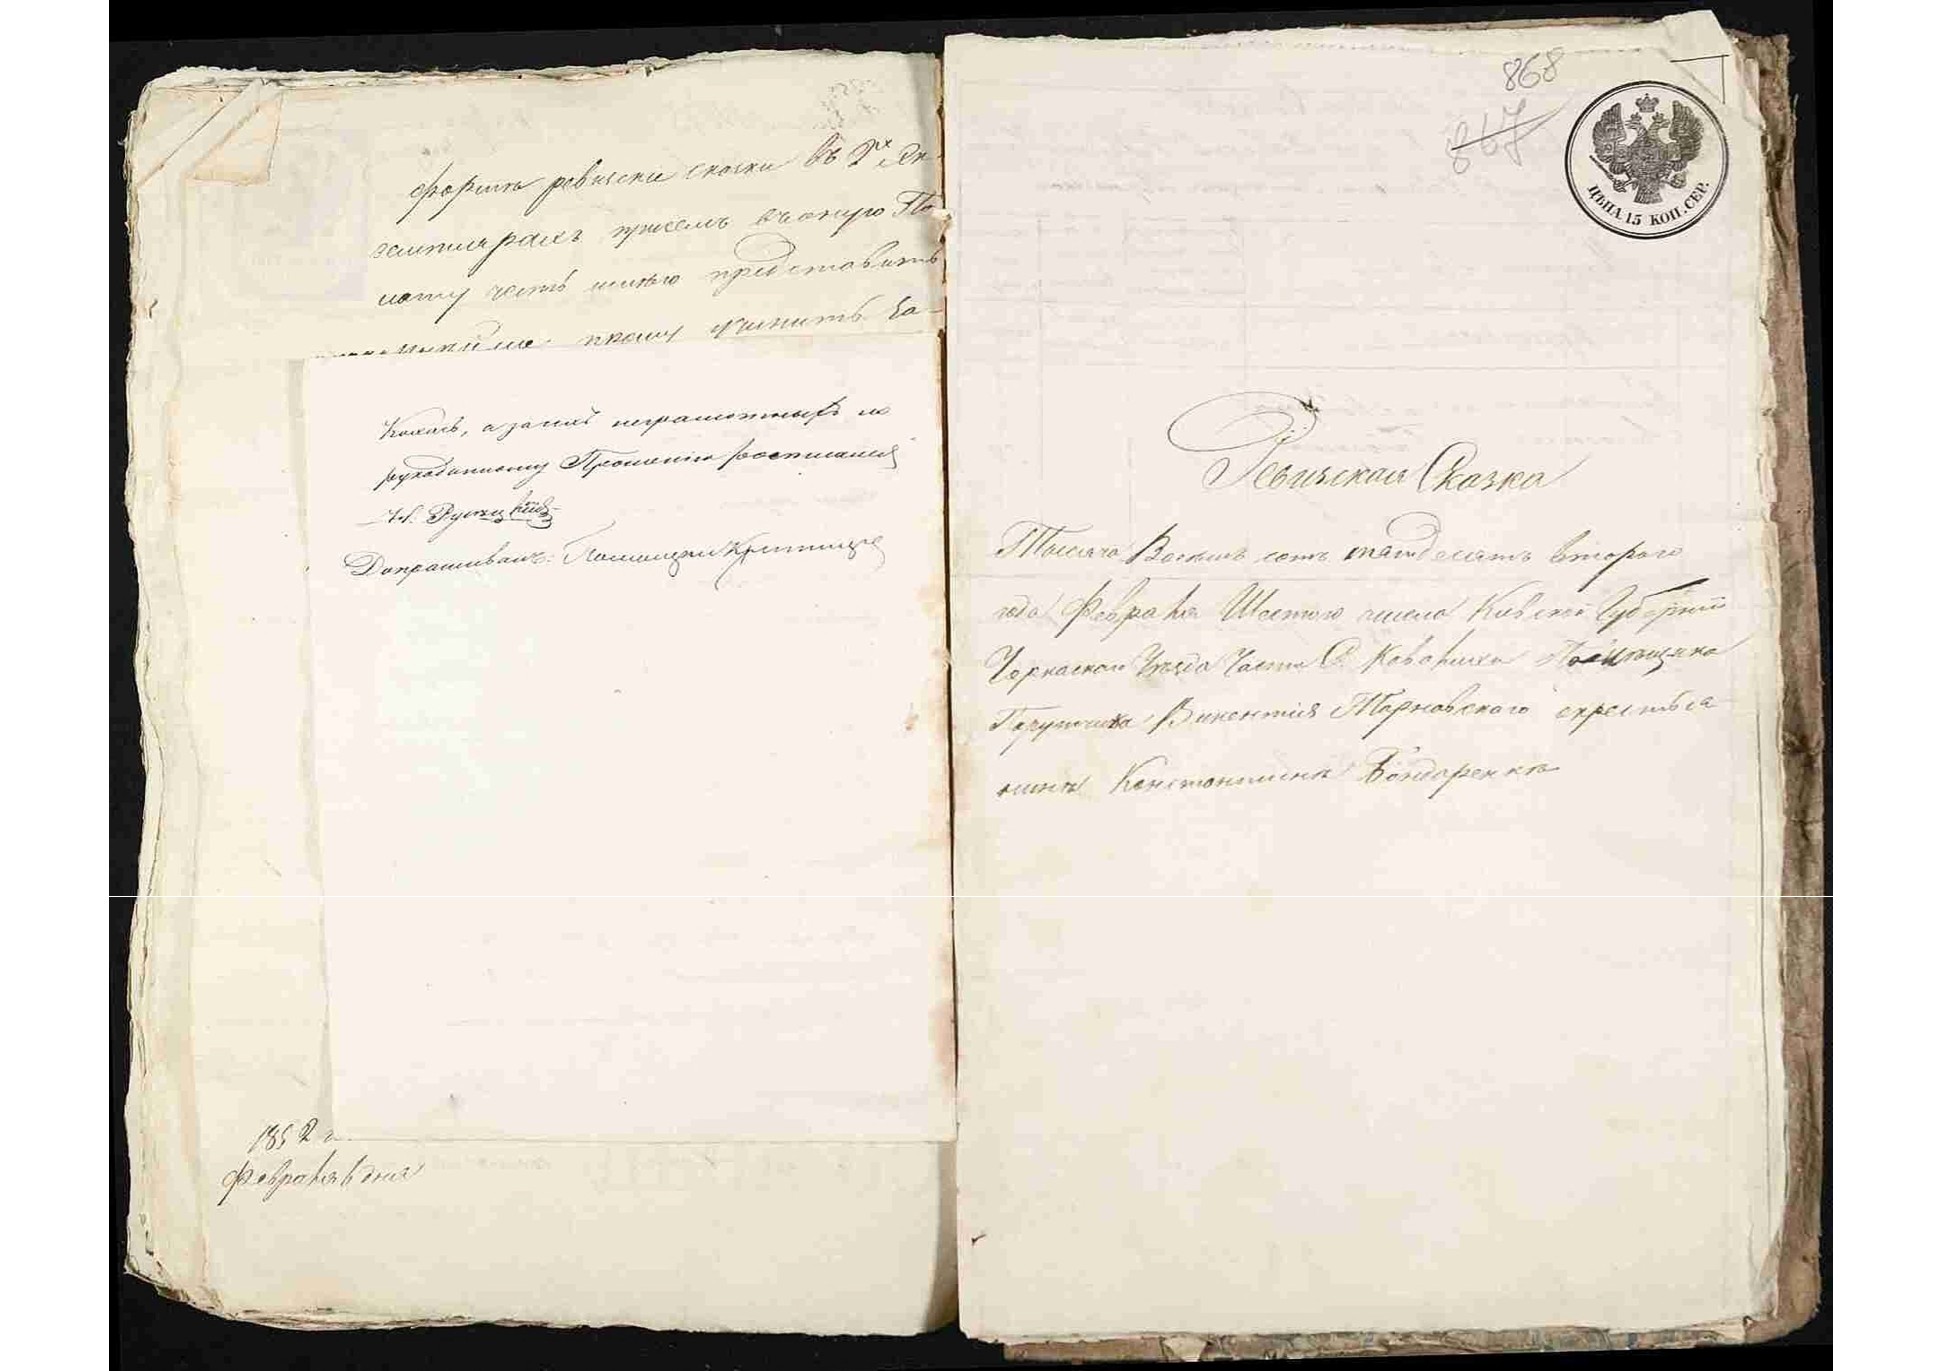 формы ревизски сказки въ 2х эк-
земплярахъ при семъ въ оную По-
лату честь имею представить
прошу учинить
а за нихъ неграмотныхъ по
рукоданному Прошению росписался
Допрашивалъ:
1852 г.
Февраля 6 дня
868
867
ЦѢНА 15 КОП. СЕР.
Ревизская Сказка
Тысяча Восемь сотъ пятдесятъ второго
года Февраля Шестого числа Киевской Губернии
Черкаского Уезда Части С. Помещика
Поручика Викентия Тарновского скрестья-
нина Константина Бондаренка